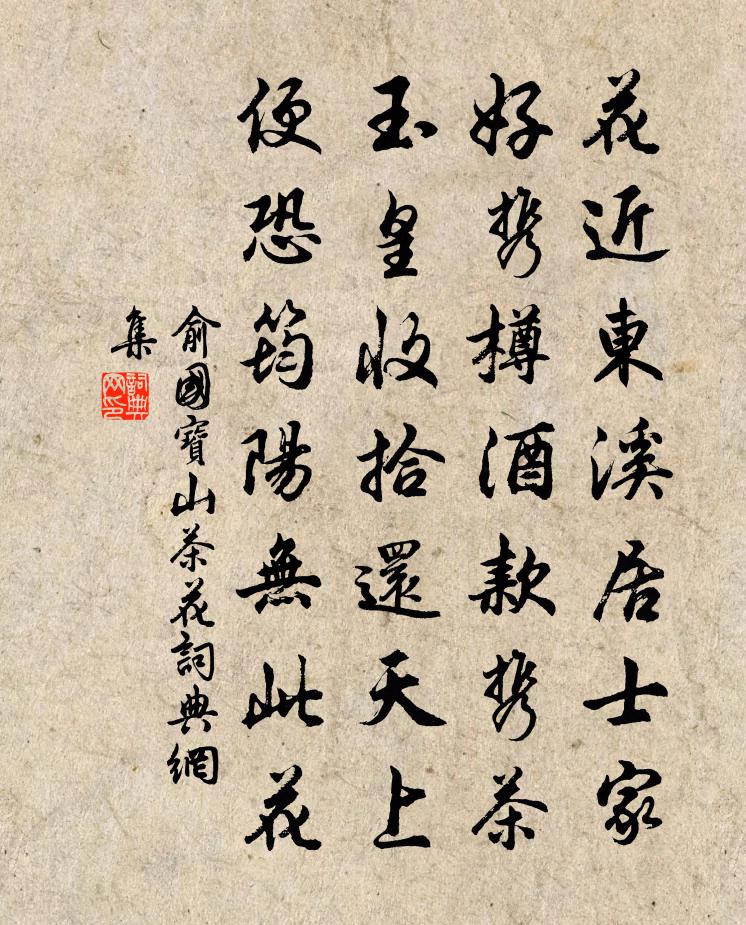 花近東溪居士家
好携樽酒款携茶
玉皇收拾還天上
便恐筠陽無此花
俞國寶山茶花詞典網
集
詞典网印